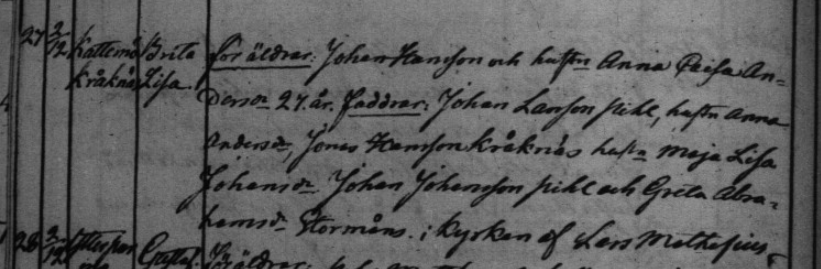 27 2/12 Kattemå Brita föräldrar: Johan Hansson och hustn Anna Caisa An=
Kråknäs Lisa. dersdr 27. år. faddrar: Johan Larsson pihl, hustn Anna
Andersdr, Jonas Hansson Kråknäs hustn Maja Lisa
Johansdr Johan Johansson pihl och Greta Abra=
hamsdr Stormåns. i Kyrkan af Lars Mathesius
28 2/12 Gustaf. föräldrar: